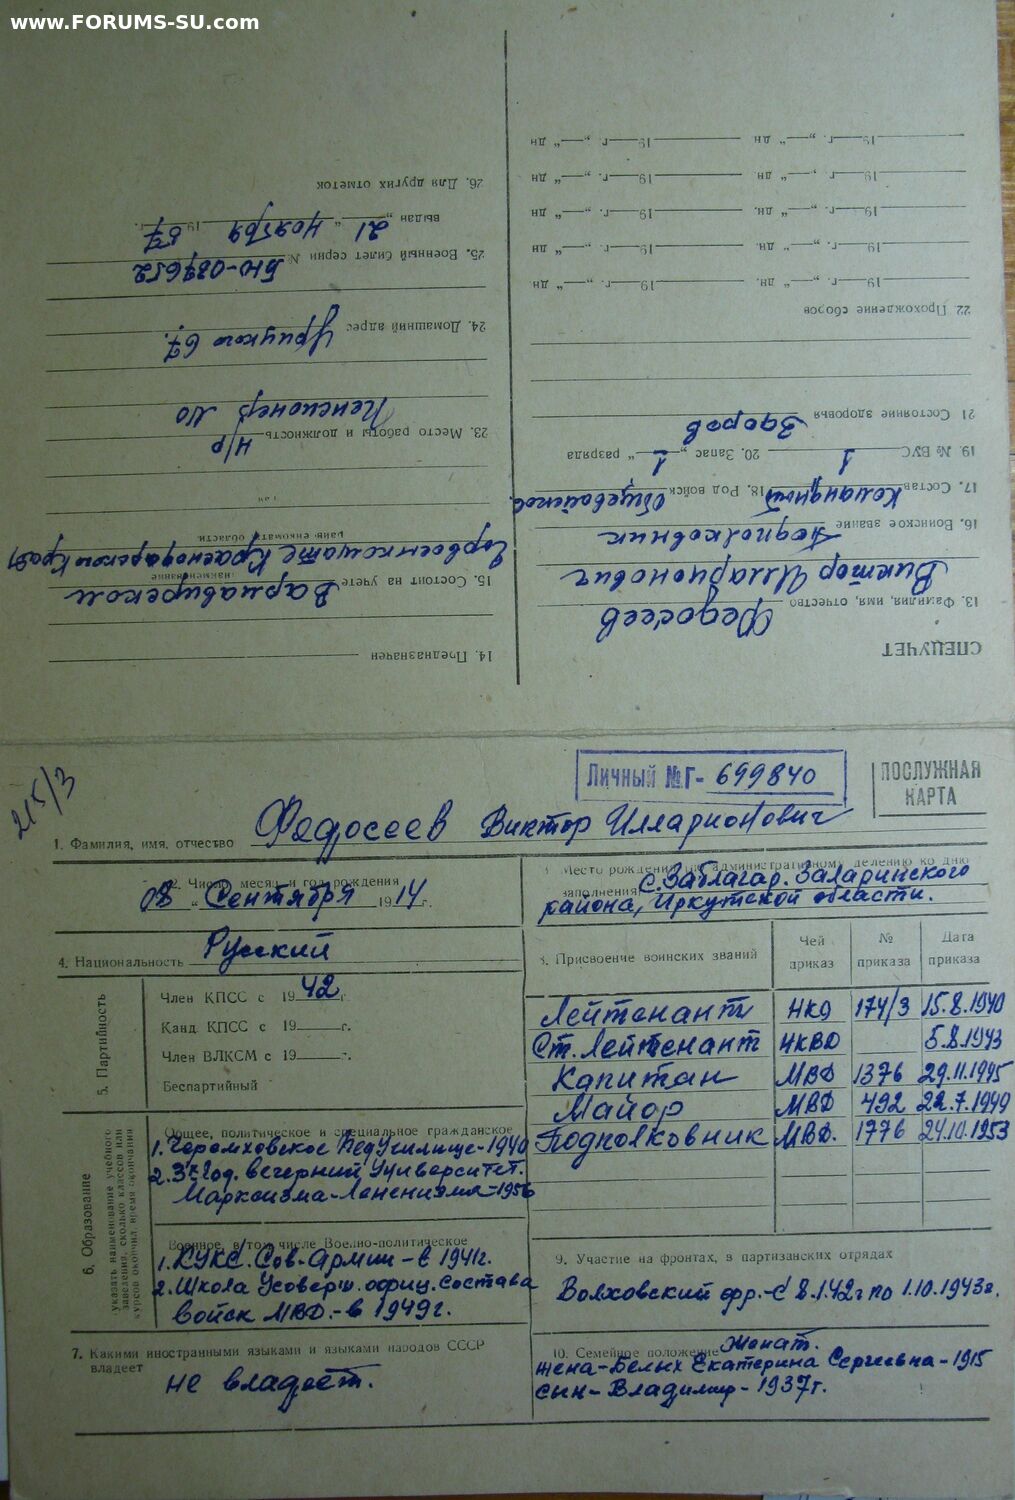 www.FORUMS-SU.com
215/3
Личный № Г- 699840
ПОСЛУЖНАЯ
КАРТА
1. Фамилия, имя, отчество Федосеев Виктор Илларионович
2. Число, месяц и год рождения
08 Сентября 1914 г.
Место рождения по административному делению ко дню
заполнения с. Заблагар. Заларинского
района, Иркутской области.
4. Национальность Русский
5. Партийность
Член КПСС с 1942 г.
Канд. КПСС с 19 г.
Член ВЛКСМ с 19 г.
Беспартийный
8. Присвоение воинских званий
Чей приказ
№ приказа
Дата приказа
Лейтенант НКО 174/3 15.8.1940
Ст. Лейтенант НКВД 5.8.1943
Капитан МВД 1376 29.11.1945
Майор МВД 492 22.7.1949
Подполковник МВД. 1776 24.10.1953
6. Образование
указать наименование учебного
заведения, сколько классов или
курсов окончил, время окончания
Общее, политическое и специальное гражданское
1. Черемховское ПедУчилище-1940
2. 3х год. вечерний Университет.
Марксизма-Ленинизма-1956
Военное, в том числе Военно-политическое
1. КУКС. Сов. Армии - в 1941г.
2. Школа Усоверш. офиц. Состава
войск МВД.- в 1949г.
7. Какими иностранными языками и языками народов СССР
владеет
не владеет.
9. Участие на фронтах, в партизанских отрядах
Волховский фр.- с 8.1.42г по 1.10.1943г.
10. Семейное положение Женат.
жена-Белых Екатерина Сергеевна-1915
сын-Владимир-1937г.
СПЕЦУЧЕТ
13. Фамилия, имя, отчество Федосеев
Виктор Илларионович
16. Воинское звание Подполковник
17. Состав Командный 18. Род войск Общевойсков.
19. № ВУС 1 20. Запас „ 1 “ разряда
21 Состояние здоровья Здоров
22. Прохождение сборов
19 г. „ “ дн. 19 г. „ “ дн
19 г. „ “ дн. 19 г. „ “ дн
19 г. „ “ дн. 19 г. „ “ дн
19 г. „ “ дн 19 г. „ “ дн
19 г. „ “ дн 19 г. „ “ дн
14. Предназначен
15. Состоит на учете в Армавирском
наименование
Горвоенкомате Краснодарского Края)
райвоенкомата области
23. Место работы и должность н/р
Пенсионер МО
24. Домашний адрес Урицкого 67.
25. Военный билет серии № БЮ-037652
выдан „ 21 “ ноября 1957 г.
26. Для других отметок